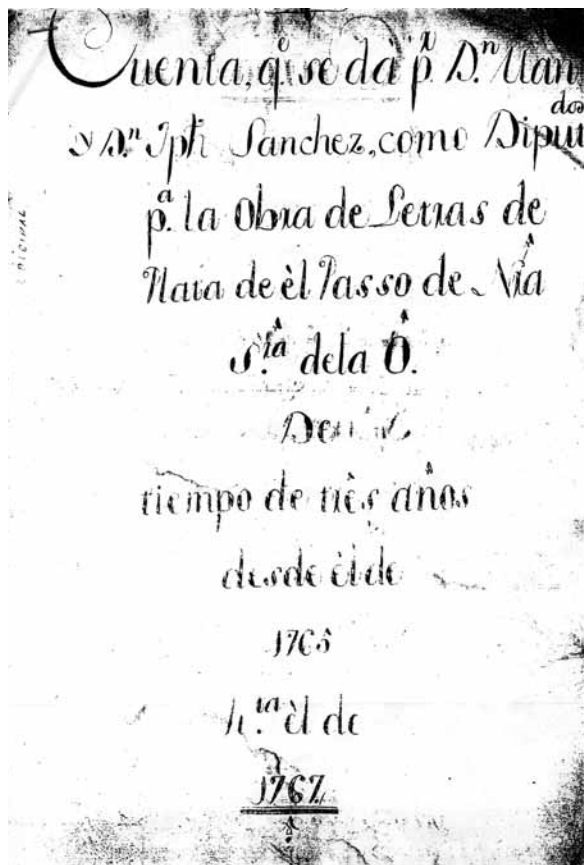 Cuenta, q.e se dà p.r D.n Man
y D.n Jph Sanchez, como Diput
dos
p.a la Obra de Letras de
Plata de èl Passo de Nra
S.ra dela Ô.
tiempo de três años
desde èl de
1765
h.ta èl de
1767